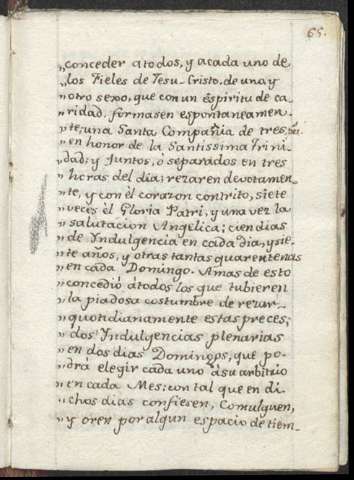 65.
„conceder atodos, y acada uno de
„los Fieles de Jesu-Cristo, de una y
„otro sexo, que con un espiritu de ca„
„ridad, formasen espontaneamen„
„te; una Santa Compañia de tres,
„en honor de la Santissima Trini„
„dad; y Juntos, ó separados en tres
„horas del dia; rezaren devotamen„
„te, y con el corazon contrito, siete
„veces él Gloria Patri, y una vez la
„salutacion Angelica; cien dias
„de Yndulgencia en cada dia, y sie„
„te años, y otras tantas quarentenas
„en cada Domingo. Amas de esto
„concedió átodos los que tubieren
„la piadosa costumbre de rezar„
„quotidianamente estas preces;
„dos Yndulgencias plenarias
„en dos dias Domingos, que po„
„drá elegir cada uno ásu arbitrio
„en cada Mes; con tal que en di„
„chos dias confiesen, Comulguen,
„y oren por algun espacio de tiem„